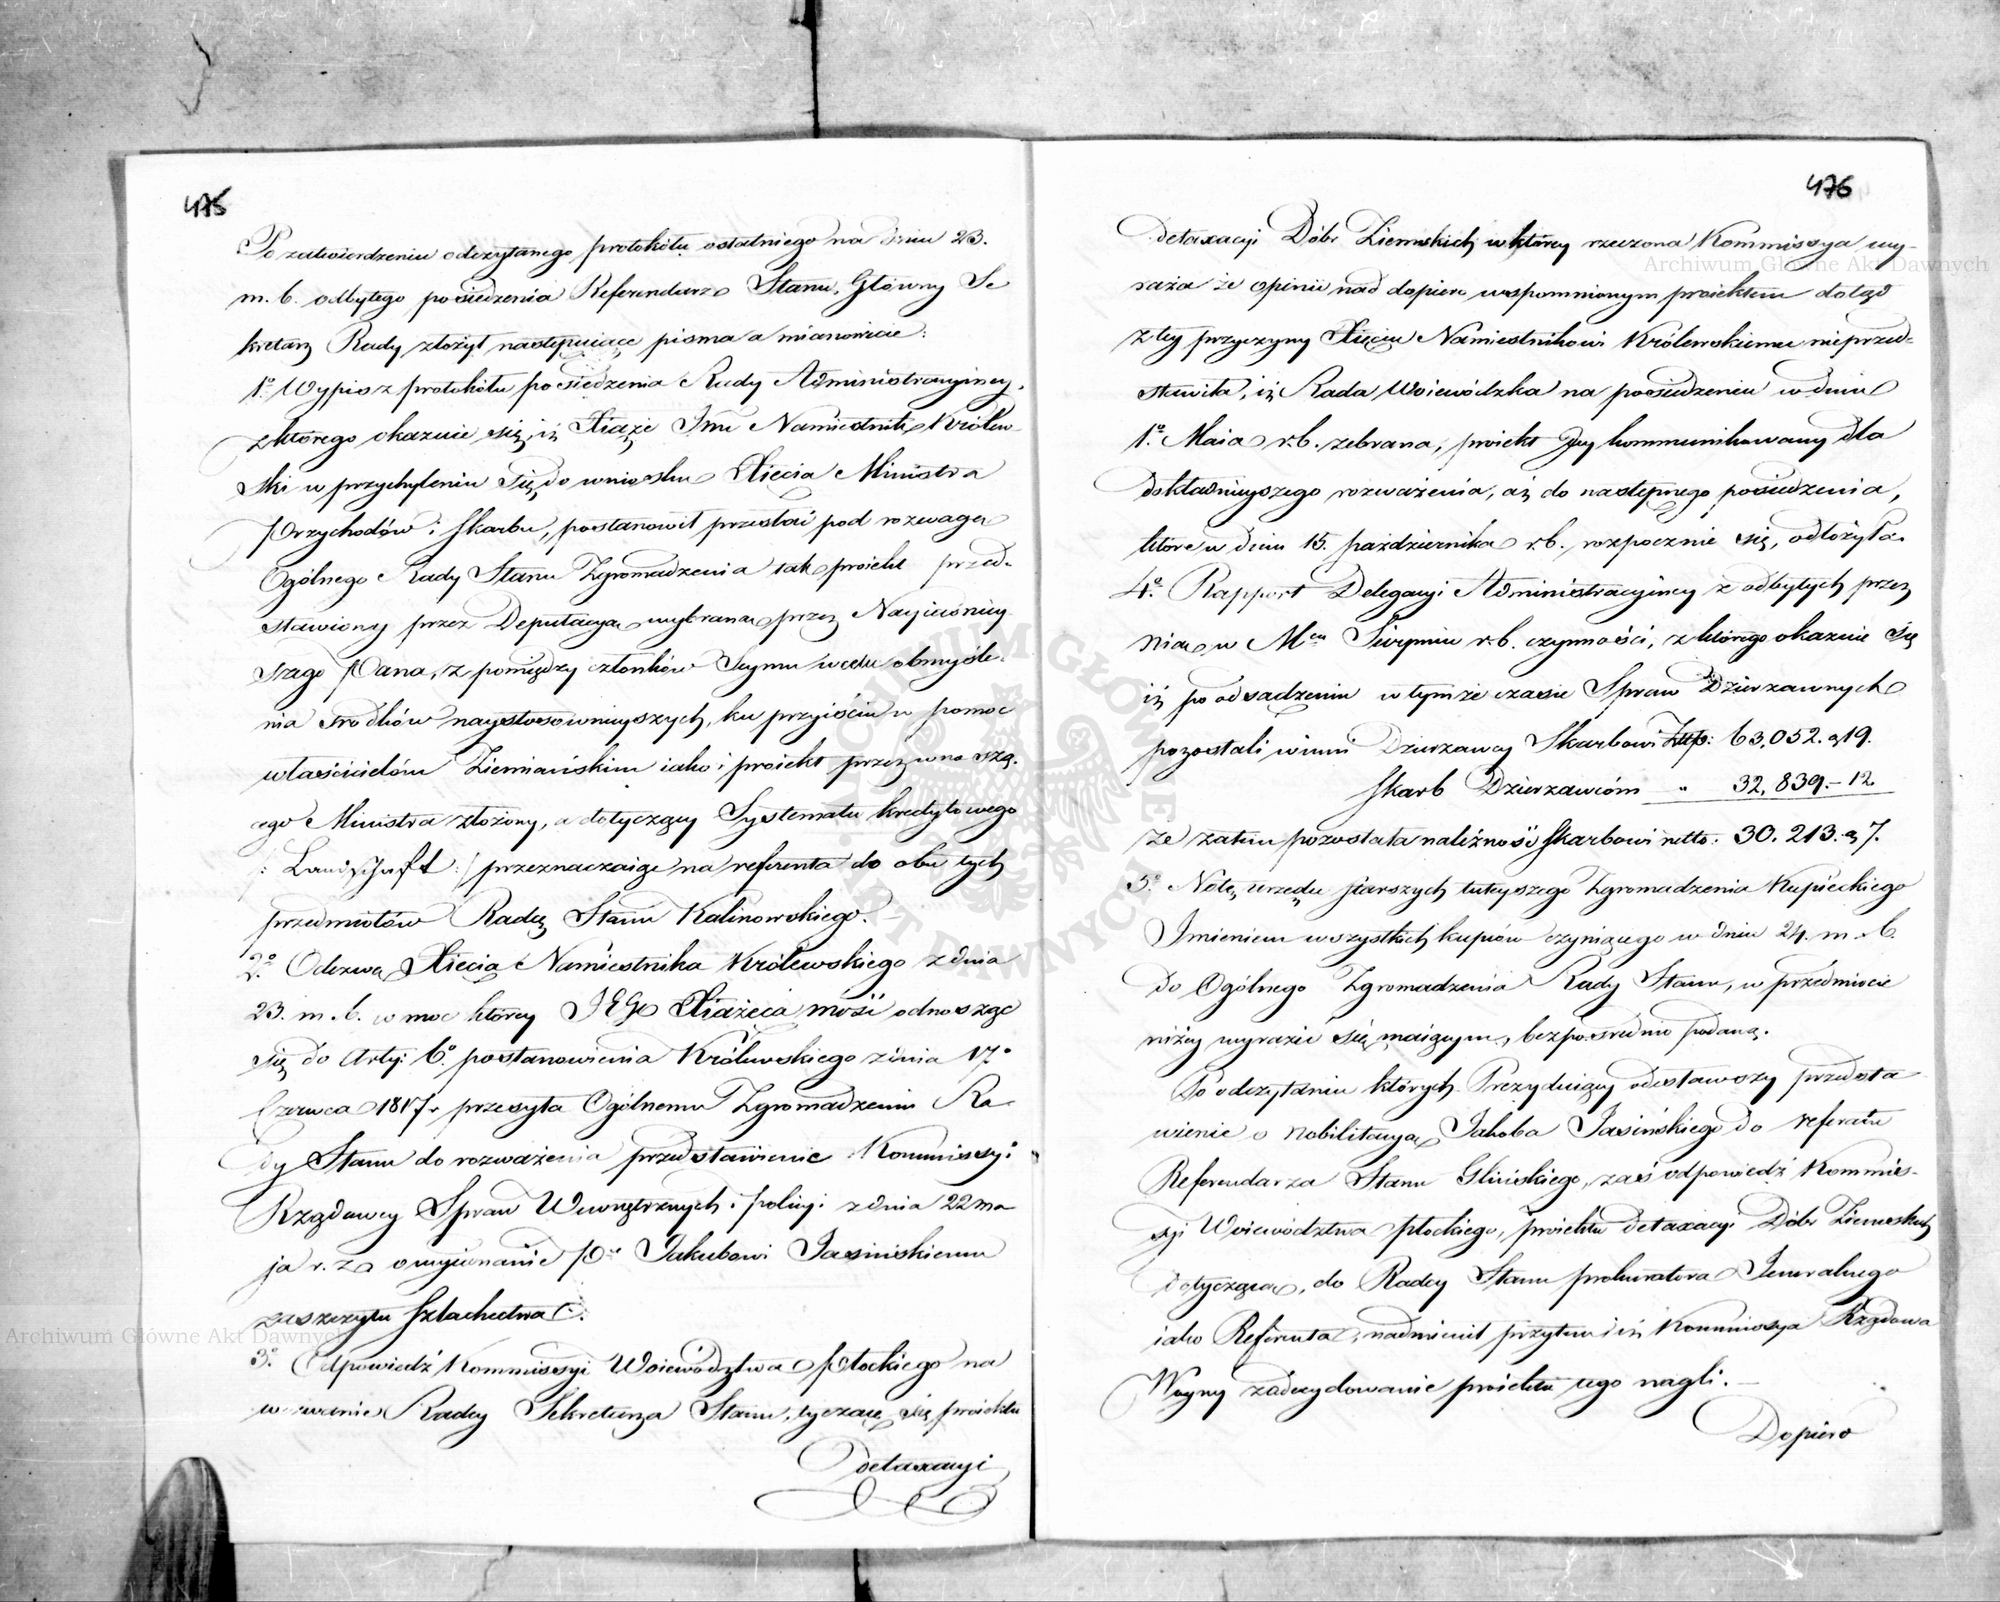 475
Po zatwierdzeniu odczytanego protokółu ostatniego na dniu 23.
m. b. odbytego posiedzenia Referendarz Stanu, Główny Se
kretarz Rady złożył następuiące pisma a mianowicie:
1o Wypis z protokółu posiedzenia Rady Administracyiney,
z którego okazuie się, iż Xiąże Jmć Namiestnik Królew-
ski w przychyleniu się do wniosku Xięcia Ministra
Przychodów i Skarbu, postanowił przesłać pod rozwagę
Ogólnego Rady Stanu Zgromadzenia tak proiekt przed-
stawiony przez Deputacyą wybraną przez Nayiaśniey
szego Pana, z pomiędzy członków Seymu w celu obmyśle-
nia środków naystosownieyszych, ku przyiściu w pomoc
właścicielóm Ziemiańskim iako i proiekt przez wno szą-
cego Ministra złożony, a dotyczący Systematu kredytowego
/: Landschaft :/ przeznaczaiąc na referenta do obu tych
przedmiotów Radcę Stanu Kalinowskiego.
2o Odezwę Xięcia Namiestnika Królewskiego z dnia
23. m. b. w moc którey JEGO Xiążęca mość odnosząc
się do Arty: 6o postanowienia Królewskiego z dnia 17o
Czerwca 1817 r przesyła Ogólnemu Zgromadzeniu Ra-
dy Stanu do rozważenia przedstawienie Kommissyi
Rządowey Spraw Wewnętrznych i policyi z dnia 22 ma
ja r. z. o wyjednanie Pu Jakubowi Jasińskiemu
zaszczytu Szlachectwa.
3o Odpowiedź Kommissyi Woiewództwa Płockiego na
wezwanie Radcy Sekretarza Stanu, tyczące się proiektu
detaxacyi
476
detaxacyi Dóbr Ziemskich w którey rzeczona Kommissya wy-
raża że opinii nad dopiero wspomnionym proiektem dotąd
z tey przyczyny Xięciu Namiestnikowi Królewskiemu nieprzed-
stawiła, iż Rada Woiewódzka na posiedzeniu w dniu
1o Maia r. b. zebrana, proiekt Jey kommunikowany dla
dokładnieyszego rozważenia, aż do następnego posiedzenia,
które w dniu 15. października r. b. rozpocznie się, odłożyła.
4o Rapport Delegacyi Administracyiney z odbytych przez
nią w Mcu Sierpniu r. b. czynności, z którego okazuie się
iż po odsadzeniu w tymże czasie Spraw Dzierzawnych
pozostali winni Dzierzawcy Skarbowi Złp: 63,052. g 19.
Skarb Dzierzawcóm " 32,839. - 12.
że zatem pozostała należność Skarbowi netto. 30.213. g 7.
5o Notę urzędu starszych tuteyszego Zgromadzenia Kupieckiego
Imieniem wszystkich kupców czyniącego w dniu 24. m. b.
do Ogólnego Zgromadzenia Rady Stanu, w przedmiocie
niżey wyrazić się maiącym, bezpośrednio podaną.
Po odczytaniu których Prezyduiący odesławszy przedsta
wienie o nobilitacyą Jakóba Jasińskiego do referatu
Referendarza Stanu Glińskiego, zaś odpowiedź Kommis-
syi Woiewództwa płockiego, proiektu detaxacyi Dóbr Ziemskich
dotyczącą, do Radcy Stanu prokuratora Jeneralnego
iako Referenta, nadmienił przytem iż Kommissya Rządowa
Woyny zadecydowanie proiektu tego nagli.
Dopiero
Archiwum Główne Akt Dawnych
Archiwum Główne Akt Dawnych
ARCHIWUM GŁÓWNE AKT DAWNYCH